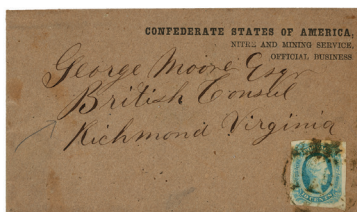 CONFEDERATE STATES OF AMERICA,
NITRE AND MINING SERVICE,
OFFICIAL BUSINESS
George Moore Esqr
British Consul
Richmond Virginia